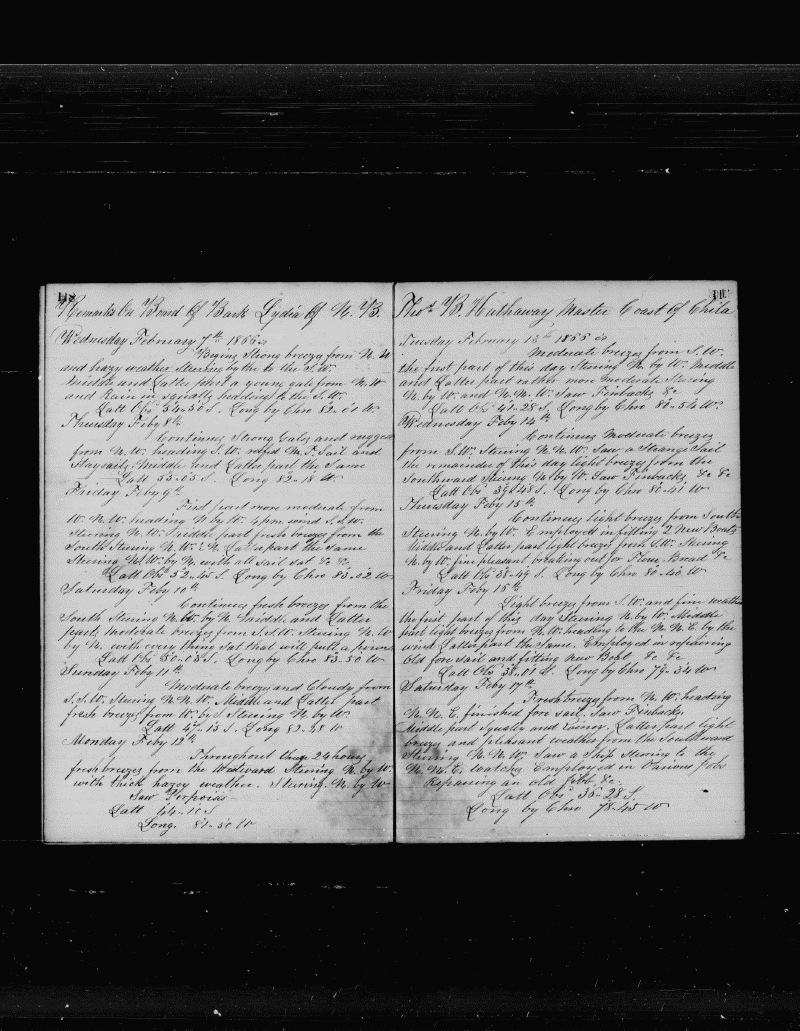 118
Remarks On Board Of Bark Lydia Of N. B.
Wednesday February 7th 1866
Begins Strong breezes from N. W
and hazy weather Steering by the to the S. W.
Middle and Latter part a young gale from N. W
and Rain in squalls heading to the S. W.
Latt Obs 54-50 S. Long by Chro 82-01 W.
Thursday Feby 8th
Continues Strong Gales and rugged
from N. W. heading S. W. M. T. Sail and
Staysails Middle and Latter part the Same
Latt 53-55 S. Long 82-18 W
Friday Feby 9th
First part more moderate from
W. N. W. heading N by W. 4 pm wind S. S. W.
Steering N. W. Middle part fresh breezes from the
South Steering N. W. Latter part the same
Steering N. W. by N. with all sail sat &c &c
Latt Obs 52-45 S. Long by Chro 83-02 W
Saturday Feby 10th
Continues fresh breezes from the
South Steering N. W. by N. Middle and Latter
part, moderate breezes from S. S. W. Steering N. W
by N. with every thing sat that will pull a pound
Latt Obs 50-05 S. Long by Chro 83.50 W
Sunday Feby 11th
Moderate breezes and Cloudy from
S. S. W. Steering N. N. W. Middle and Latter part
fresh breezes from W. by S Steering N by W.
Latt 47-13 S. Long 82.48 W
Monday Feby 12th
Throughout these 24 hours
fresh breezes from the Westward Steering N. by W.
with thick hazey weather. Steering N. by W
Saw Porpoise
Latt 44-10 S
Long. 81-50 W
Thos B. Hathaway Master Coast Of Chila
Tuesday February 13th 1866
Moderate breezes from S. W.
the first part of this day Steering N. by W. Middle
and Latter part rather more moderate Steering
N. by W. and N. N. W. Saw Finbacks &c
Latt Obs 41-28 S. Long by Chro 80-54 W.
Wednesday Feby 14th
Continues Moderate breezes
from S. W. Steering N. N. W. Saw a Strange Sail
the remainder of this day light breezes from the
Southward Steering N. by W. Saw Finbacks, &c &c
Latt Obs 39-48 S. Long by Chro 80-41 W
Thursday Feby 15th
Continues light breezes from South
Steering N. by W. Employed in fitting 2 New Boats
Middle and Latter part light breezes from S. W. Steering
N. by W. fine pleasant breaking out for Flour Bread &c
Latt Obs 38-49 S. Long by Chro 80-40 W
Friday Feby 16th
Light breezes from S. W. and fine weather
the first part of this day Steering N. by W. Middle
part light breezes from N. W. heading to the N. N. E. by the
wind Latter part the Same. Employed in repairing
Old fore sail and fitting new Boat &c &c
Latt Obs 38-01 S. Long by Chro 79-34 W
Saturday Feby 17th
Fresh breezes from N. W. heading
N. N. E. finished fore sail. Saw Finbacks
Middle part Squally and Latter part light
breezes and pleasant weather from the Southward
Steering N. N. W. Saw a Ship Steering to the
N. N. E. watches Employed in Various Jobs
Repairing an old Jibb &c.
Latt Obs 36-28 S
Long by Chro 78-45 W